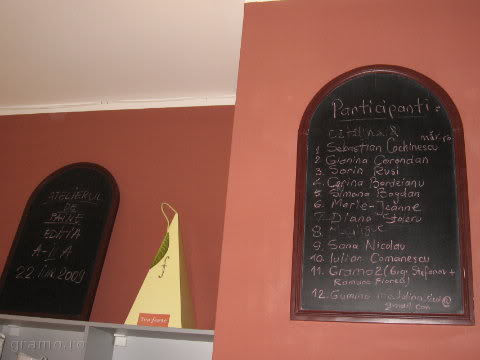 ATELIERUL
DE
PAINE
EDITIA
A-I-A
2009
f
Tea forté
Participanti:
Cătălina &
1 Sebastian Cochinescu
2 Gianina Corondan
3 Sorin Rusi
4 Corina Bordeianu
5 Simona Bogdan
6 Marie-Jeanne
7 Diana
8
9. Sana Nicolau
10 Iulian Comanescu
11. Gramo2 (Grig Stefanov +
Ramona Florea)
12.
gmail.com
gramo.ro